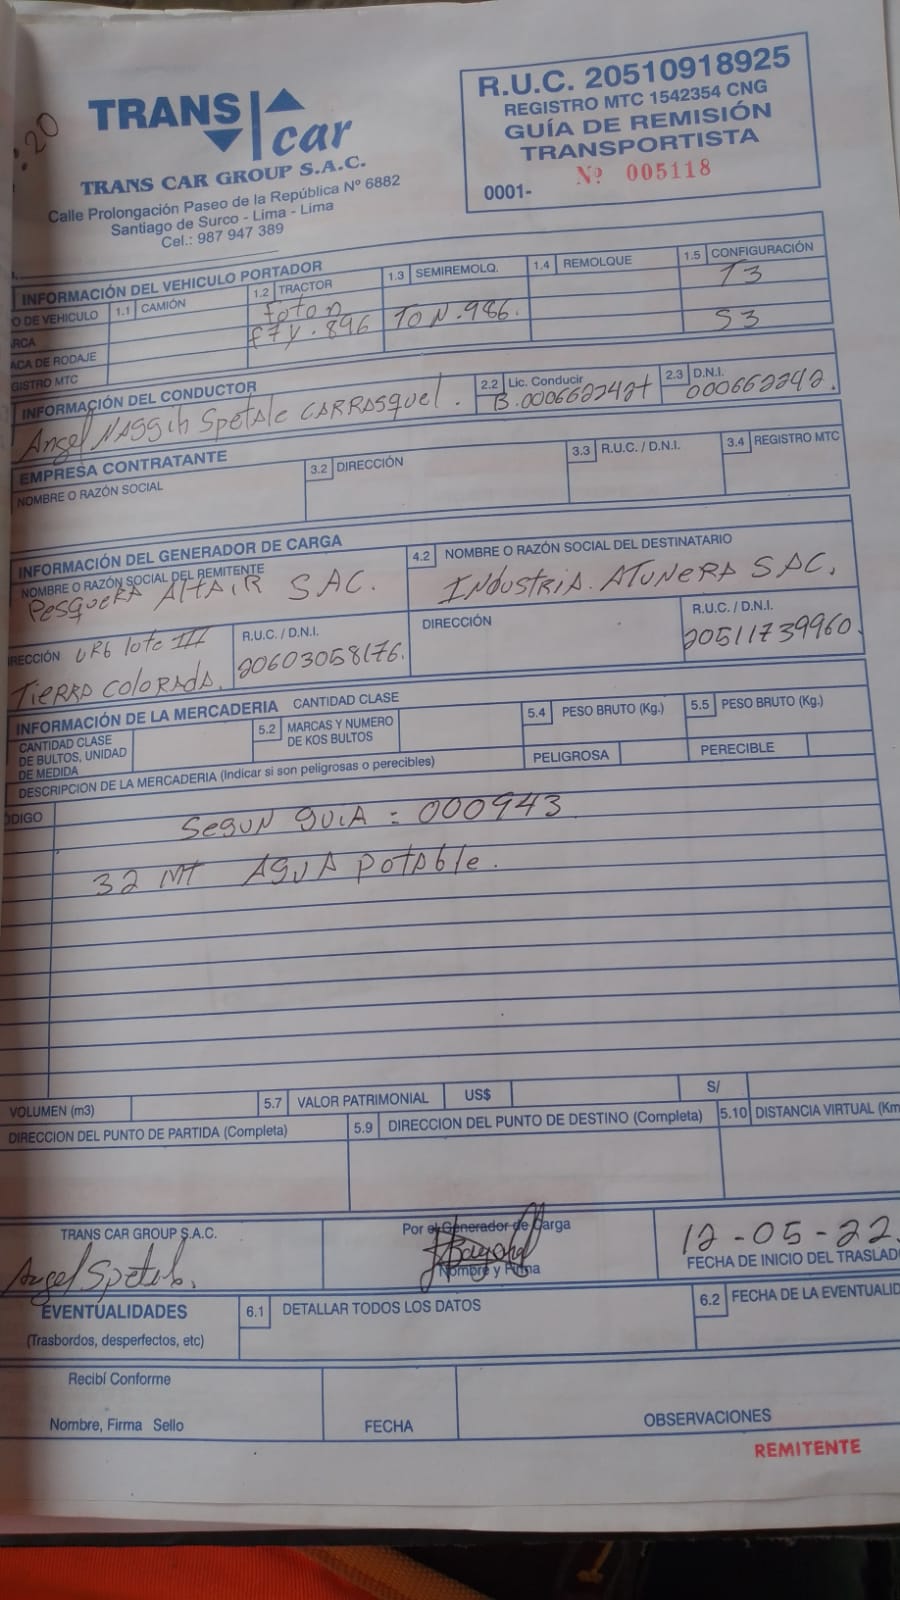 :20
TRANS car
TRANS CAR GROUP S.A.C.
Calle Prolongación Paseo de la República Nº 6882
Santiago de Surco - Lima - Lima
Cel.: 987 947 389
R.U.C. 20510918925
REGISTRO MTC 1542354 CNG
GUÍA DE REMISIÓN
TRANSPORTISTA
0001- Nº 005118
INFORMACIÓN DEL VEHICULO PORTADOR
O DE VEHICULO 1.1 CAMIÓN 1.2 TRACTOR 1.3 SEMIREMOLQ. 1.4 REMOLQUE 1.5 CONFIGURACIÓN
ARCA Foton T3
ACA DE RODAJE F7Y-896 TON-986. S3
GISTRO MTC
INFORMACIÓN DEL CONDUCTOR 2.2 Lic. Conducir 2.3 D.N.I.
Angel NAGGIH Spetale CARRASquel. B.000662242 000662242.
EMPRESA CONTRATANTE
NOMBRE O RAZÓN SOCIAL 3.2 DIRECCIÓN 3.3 R.U.C. / D.N.I. 3.4 REGISTRO MTC
INFORMACIÓN DEL GENERADOR DE CARGA
NOMBRE O RAZÓN SOCIAL DEL REMITENTE 4.2 NOMBRE O RAZÓN SOCIAL DEL DESTINATARIO
PESQUERA ALTAIR SAC. INDUSTRIA. ATUNERA SAC.
RECCIÓN URB lote III R.U.C. / D.N.I. DIRECCIÓN R.U.C. / D.N.I.
TIERRA COLORADA. 20603058176. 20511739960.
INFORMACIÓN DE LA MERCADERIA CANTIDAD CLASE
CANTIDAD CLASE
DE BULTOS, UNIDAD
DE MEDIDA
5.2 MARCAS Y NUMERO
DE KOS BULTOS
5.4 PESO BRUTO (Kg.) 5.5 PESO BRUTO (Kg.)
PELIGROSA PERECIBLE
DESCRIPCION DE LA MERCADERIA (Indicar si son peligrosas o perecibles)
ODIGO
SEGUN GUIA : 000943
32 MT AGUA POTABLE.
VOLUMEN (m3) 5.7 VALOR PATRIMONIAL US$ S/
DIRECCION DEL PUNTO DE PARTIDA (Completa) 5.9 DIRECCION DEL PUNTO DE DESTINO (Completa) 5.10 DISTANCIA VIRTUAL (Km
TRANS CAR GROUP S.A.C. Por el Generador de Carga 12-05-22.
Angel Spetale. Nombre y Firma FECHA DE INICIO DEL TRASLAD
EVENTUALIDADES 6.1 DETALLAR TODOS LOS DATOS 6.2 FECHA DE LA EVENTUALID
(Trasbordos, desperfectos, etc)
Recibí Conforme
Nombre, Firma Sello FECHA OBSERVACIONES
REMITENTE